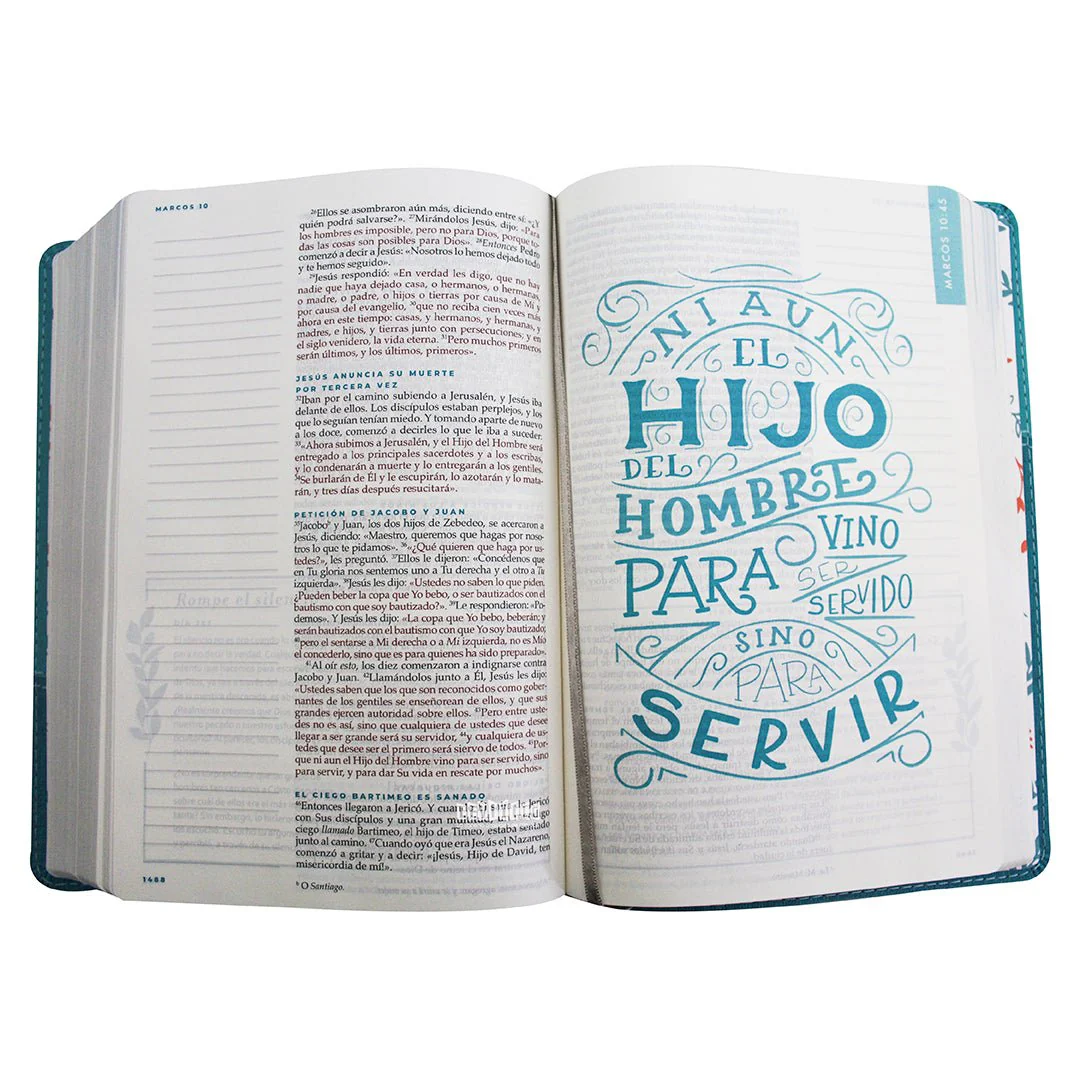 MARCOS 10
26Ellos se asombraron aún más, diciendo entre sí: «¿Y
quién podrá salvarse?». 27Mirándolos Jesús, dijo: «Para
los hombres es imposible, pero no para Dios, porque to-
das las cosas son posibles para Dios». 28Entonces Pedro
comenzó a decir a Jesús: «Nosotros lo hemos dejado todo
y te hemos seguido».
29Jesús respondió: «En verdad les digo, que no hay
nadie que haya dejado casa, o hermanos, o hermanas,
o madre, o padre, o hijos o tierras por causa de Mí y
por causa del evangelio, 30que no reciba cien veces más
ahora en este tiempo: casas, y hermanos, y hermanas, y
madres, e hijos, y tierras junto con persecuciones; y en
el siglo venidero, la vida eterna. 31Pero muchos primeros
serán últimos, y los últimos, primeros».
JESÚS ANUNCIA SU MUERTE
POR TERCERA VEZ
32Iban por el camino subiendo a Jerusalén, y Jesús iba
delante de ellos. Los discípulos estaban perplejos, y los
que lo seguían tenían miedo. Y tomando aparte de nuevo
a los doce, comenzó a decirles lo que le iba a suceder:
33«Ahora subimos a Jerusalén, y el Hijo del Hombre será
entregado a los principales sacerdotes y a los escribas,
y lo condenarán a muerte y lo entregarán a los gentiles.
34Se burlarán de Él y le escupirán, lo azotarán y lo mata-
rán, y tres días después resucitará».
PETICIÓN DE JACOBO Y JUAN
35Jacobob y Juan, los dos hijos de Zebedeo, se acercaron a
Jesús, diciendo: «Maestro, queremos que hagas por noso-
tros lo que te pidamos». 36«¿Qué quieren que haga por us-
tedes?», les preguntó. 37Ellos le dijeron: «Concédenos que
en Tu gloria nos sentemos uno a Tu derecha y el otro a Tu
izquierda». 38Jesús les dijo: «Ustedes no saben lo que piden.
¿Pueden beber la copa que Yo bebo, o ser bautizados con el
bautismo con que soy bautizado?». 39Le respondieron: «Po-
demos». Y Jesús les dijo: «La copa que Yo bebo, beberán; y
serán bautizados con el bautismo con que Yo soy bautizado;
40pero el sentarse a Mi derecha o a Mi izquierda, no es Mío
el concederlo, sino que es para quienes ha sido preparado».
41Al oír esto, los diez comenzaron a indignarse contra
Jacobo y Juan. 42Llamándolos junto a Él, Jesús les dijo:
«Ustedes saben que los que son reconocidos como gober-
nantes de los gentiles se enseñorean de ellos, y que sus
grandes ejercen autoridad sobre ellos. 43Pero entre uste-
des no es así, sino que cualquiera de ustedes que desee
llegar a ser grande será su servidor, 44y cualquiera de us-
tedes que desee ser el primero será siervo de todos. 45Por-
que ni aun el Hijo del Hombre vino para ser servido, sino
para servir, y para dar Su vida en rescate por muchos».
EL CIEGO BARTIMEO ES SANADO
46Entonces llegaron a Jericó. Y cuando Él salía de Jericó
con Sus discípulos y una gran multitud, un mendigo
ciego llamado Bartimeo, el hijo de Timeo, estaba sentado
junto al camino. 47Cuando oyó que era Jesús el Nazareno,
comenzó a gritar y a decir: «¡Jesús, Hijo de David, ten
misericordia de mí!».
b O Santiago.
Rompe el silen
1488
MARCOS 10:45
NI AUN
EL
HIJO
DEL
HOMBRE
VINO
PARA
SER
SERVIDO
SINO
PARA
SERVIR